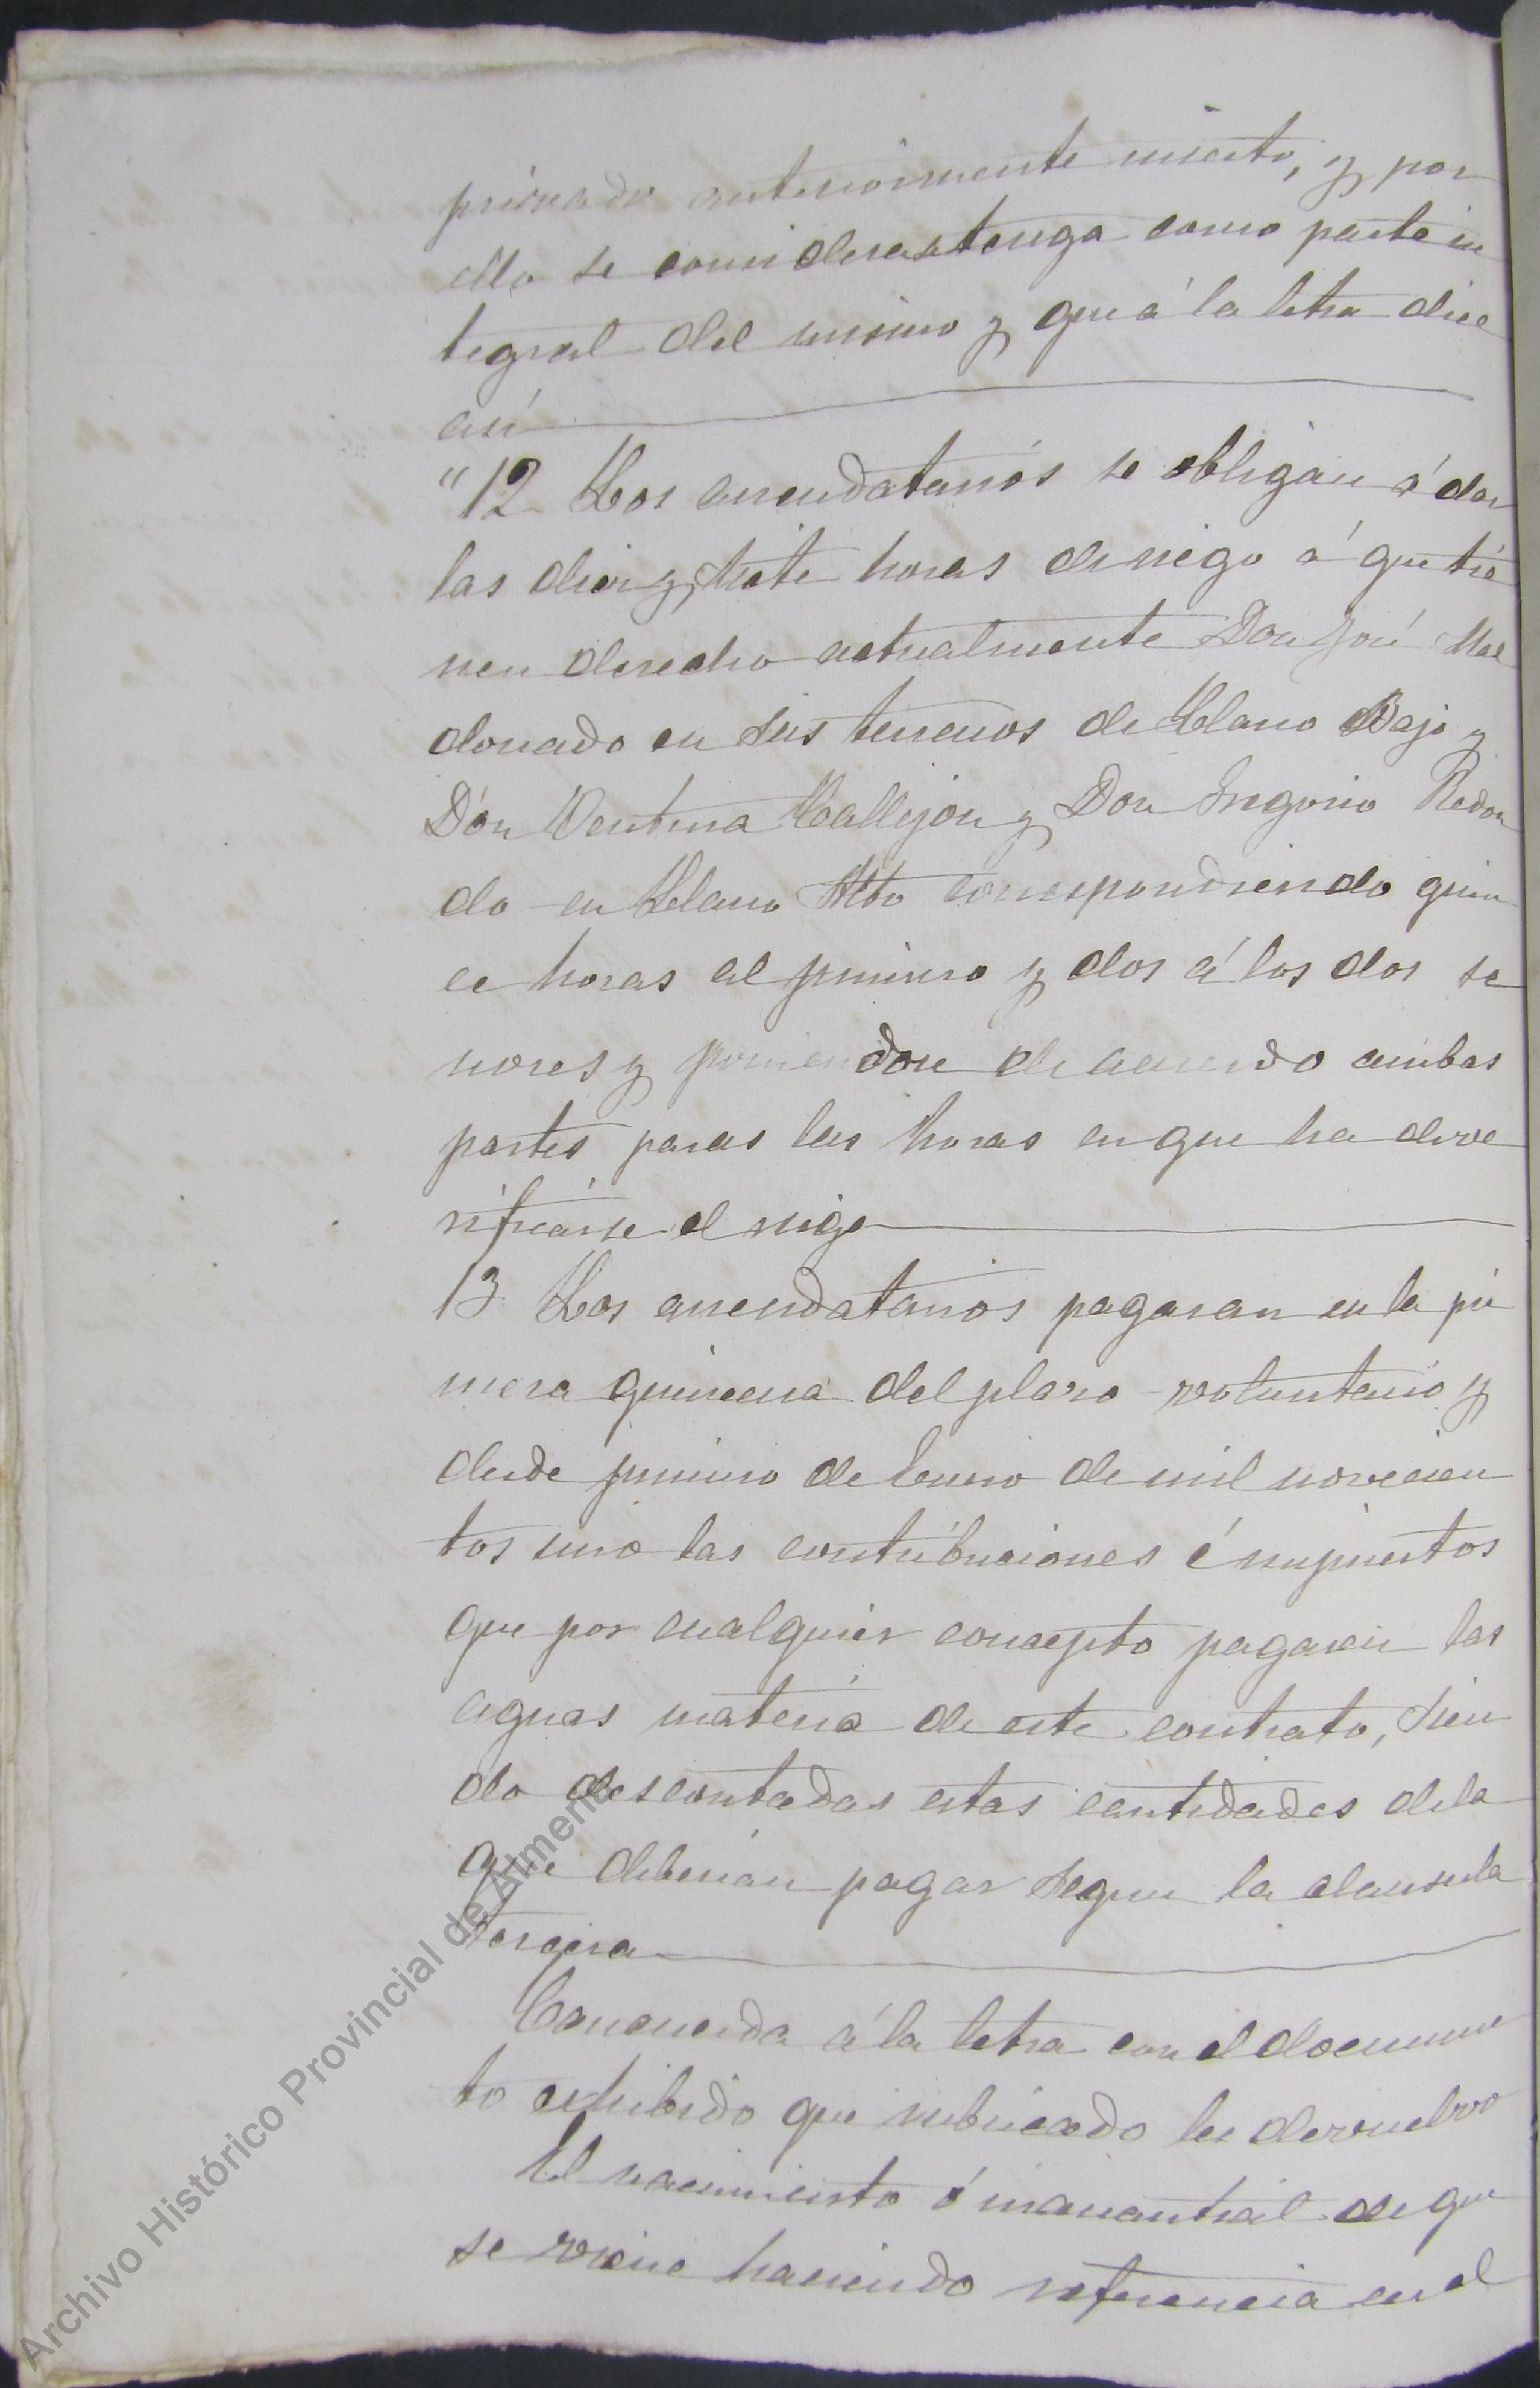 privado anteriormente inserto, y por
ello se considerase tenga como parte in
tegral del mismo y que á la letra dice
así
"12 Los arrendatarios se obligan á dar
las diez y siete horas de riego á que tie
nen derecho actualmente Don José Mal
donado en sus terrenos de Llano Bajo y
Don Ventura Callejon y Don Gregorio Redon
do en Llano Alto correspondiendo quin
ce horas al primero y dos á los dos se
nores y poniendose de acuerdo ambas
partes paras las horas en que ha de ve
rificarse el riego
13 Los arrendatarios pagaran en la pri
mera quincena del plazo voluntario y
desde primero de Enero de mil novecien
tos uno las contribuciones é impuestos
que por cualquier concepto pagasen las
aguas materia de este contrato, sien
do descontadas estas cantidades de la
que deberian pagar segun la clausula
tercera
Concuerda á la letra con el documen
to exhibido que rubricado les devuelvo
El nacimiento ó manantial de que
se viene haciendo referencia en el
Archivo Histórico Provincial de Almería